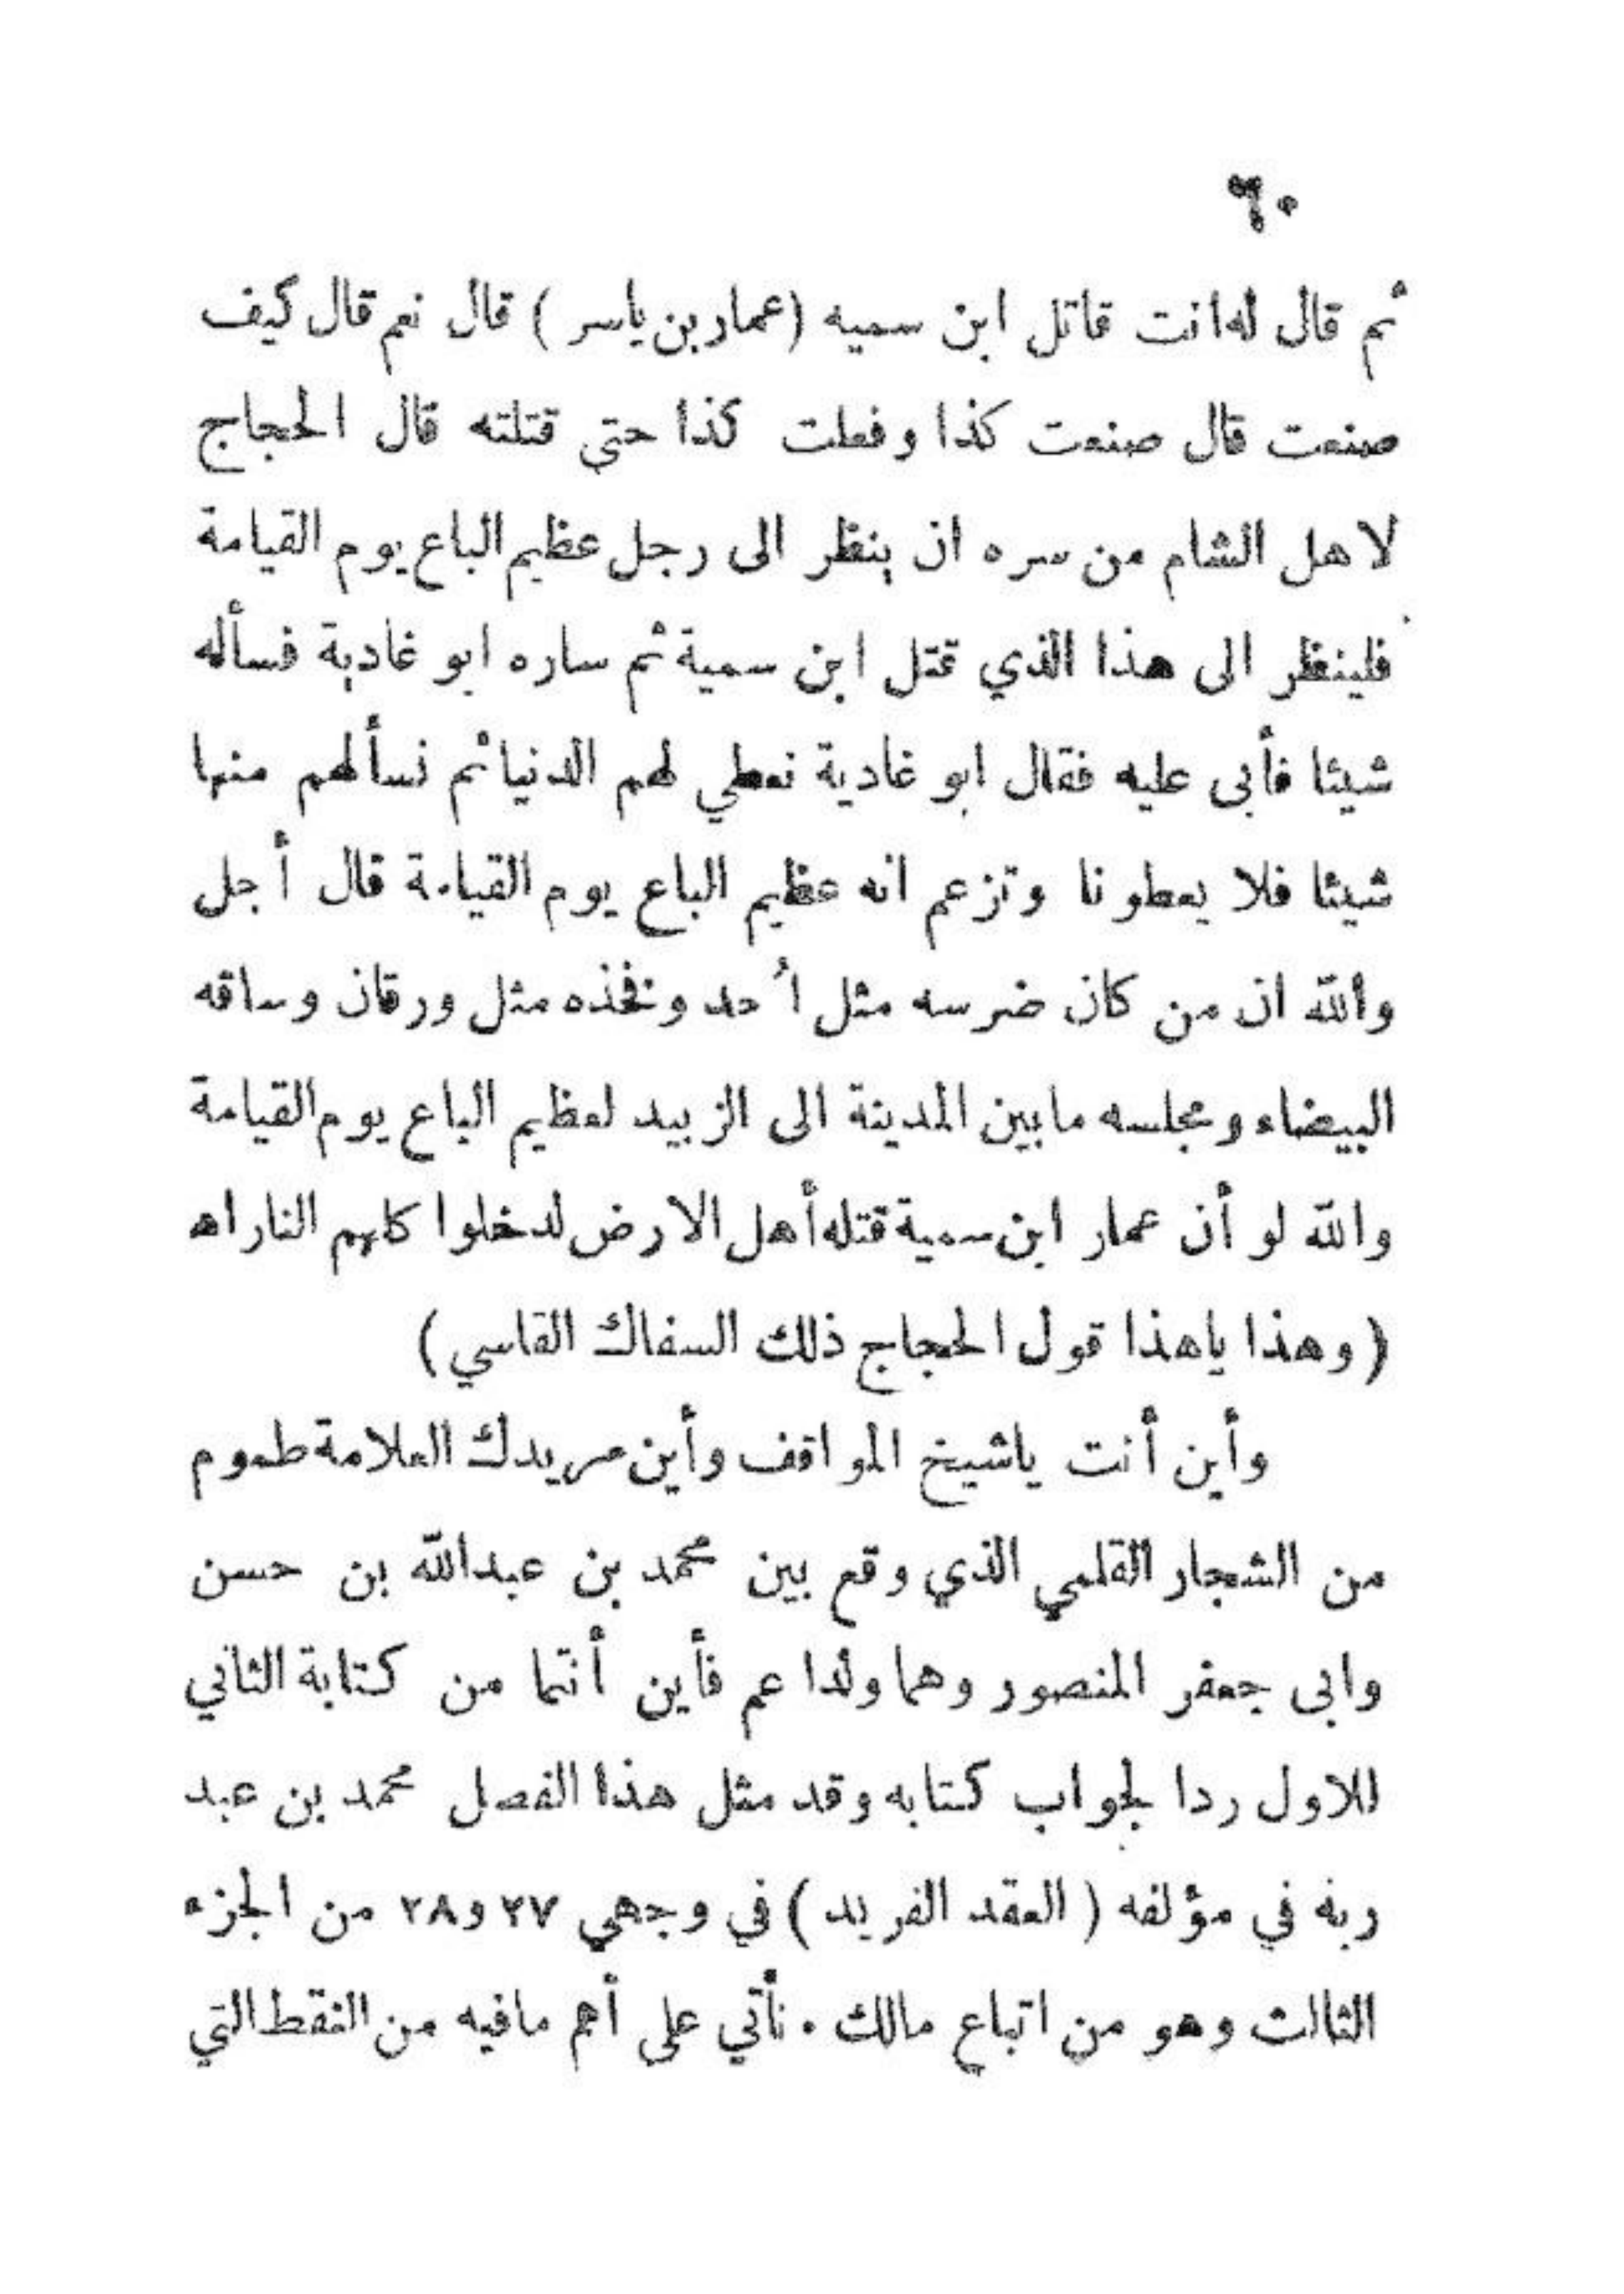 ٦٠
ثم قال له انت قاتل ابن سميه (عمار بن ياسر) قال نعم قال كيف
صنعت قال صنعت كذا وفعلت كذا حتى قتلته قال الحجاج
لاهل الشام من سره ان ينظر الى رجل عظيم الباع يوم القيامة
فلينظر الى هذا الذي قتل ابن سمية ثم ساره ابو غادية فسأله
شيئا فأبى عليه فقال ابو غادية نعطي لهم الدنيا ثم نسألهم منها
شيئا فلا يعطونا وتزعم انه عظيم الباع يوم القيامة قال أجل
والله ان من كان ضرسه مثل اُحد وفخذه مثل ورقان وساقه
البيضاء ومجلسه مابين المدينة الى الزبيد لعظيم الباع يوم القيامة
والله لو أن عمار ابن سمية قتله أهل الارض لدخلوا كلهم النار اه
(وهذا ياهذا قول الحجاج ذلك السفاك القاسي)
وأين أنت ياشيخ المواقف وأين مريدك العلامة طموم
من الشجار القلمي الذي وقع بين محمد بن عبدالله بن حسن
وابى جعفر المنصور وهما ولدا عم فأين أنتما من كتابة الثاني
للاول ردا لجواب كتابه وقد مثل هذا الفصل محمد بن عبد
ربه في مؤلفه (العقد الفريد) في وجهي ٢٧ و٢٨ من الجزء
الثالث وهو من اتباع مالك . نأتي على أهم مافيه من النقط التي